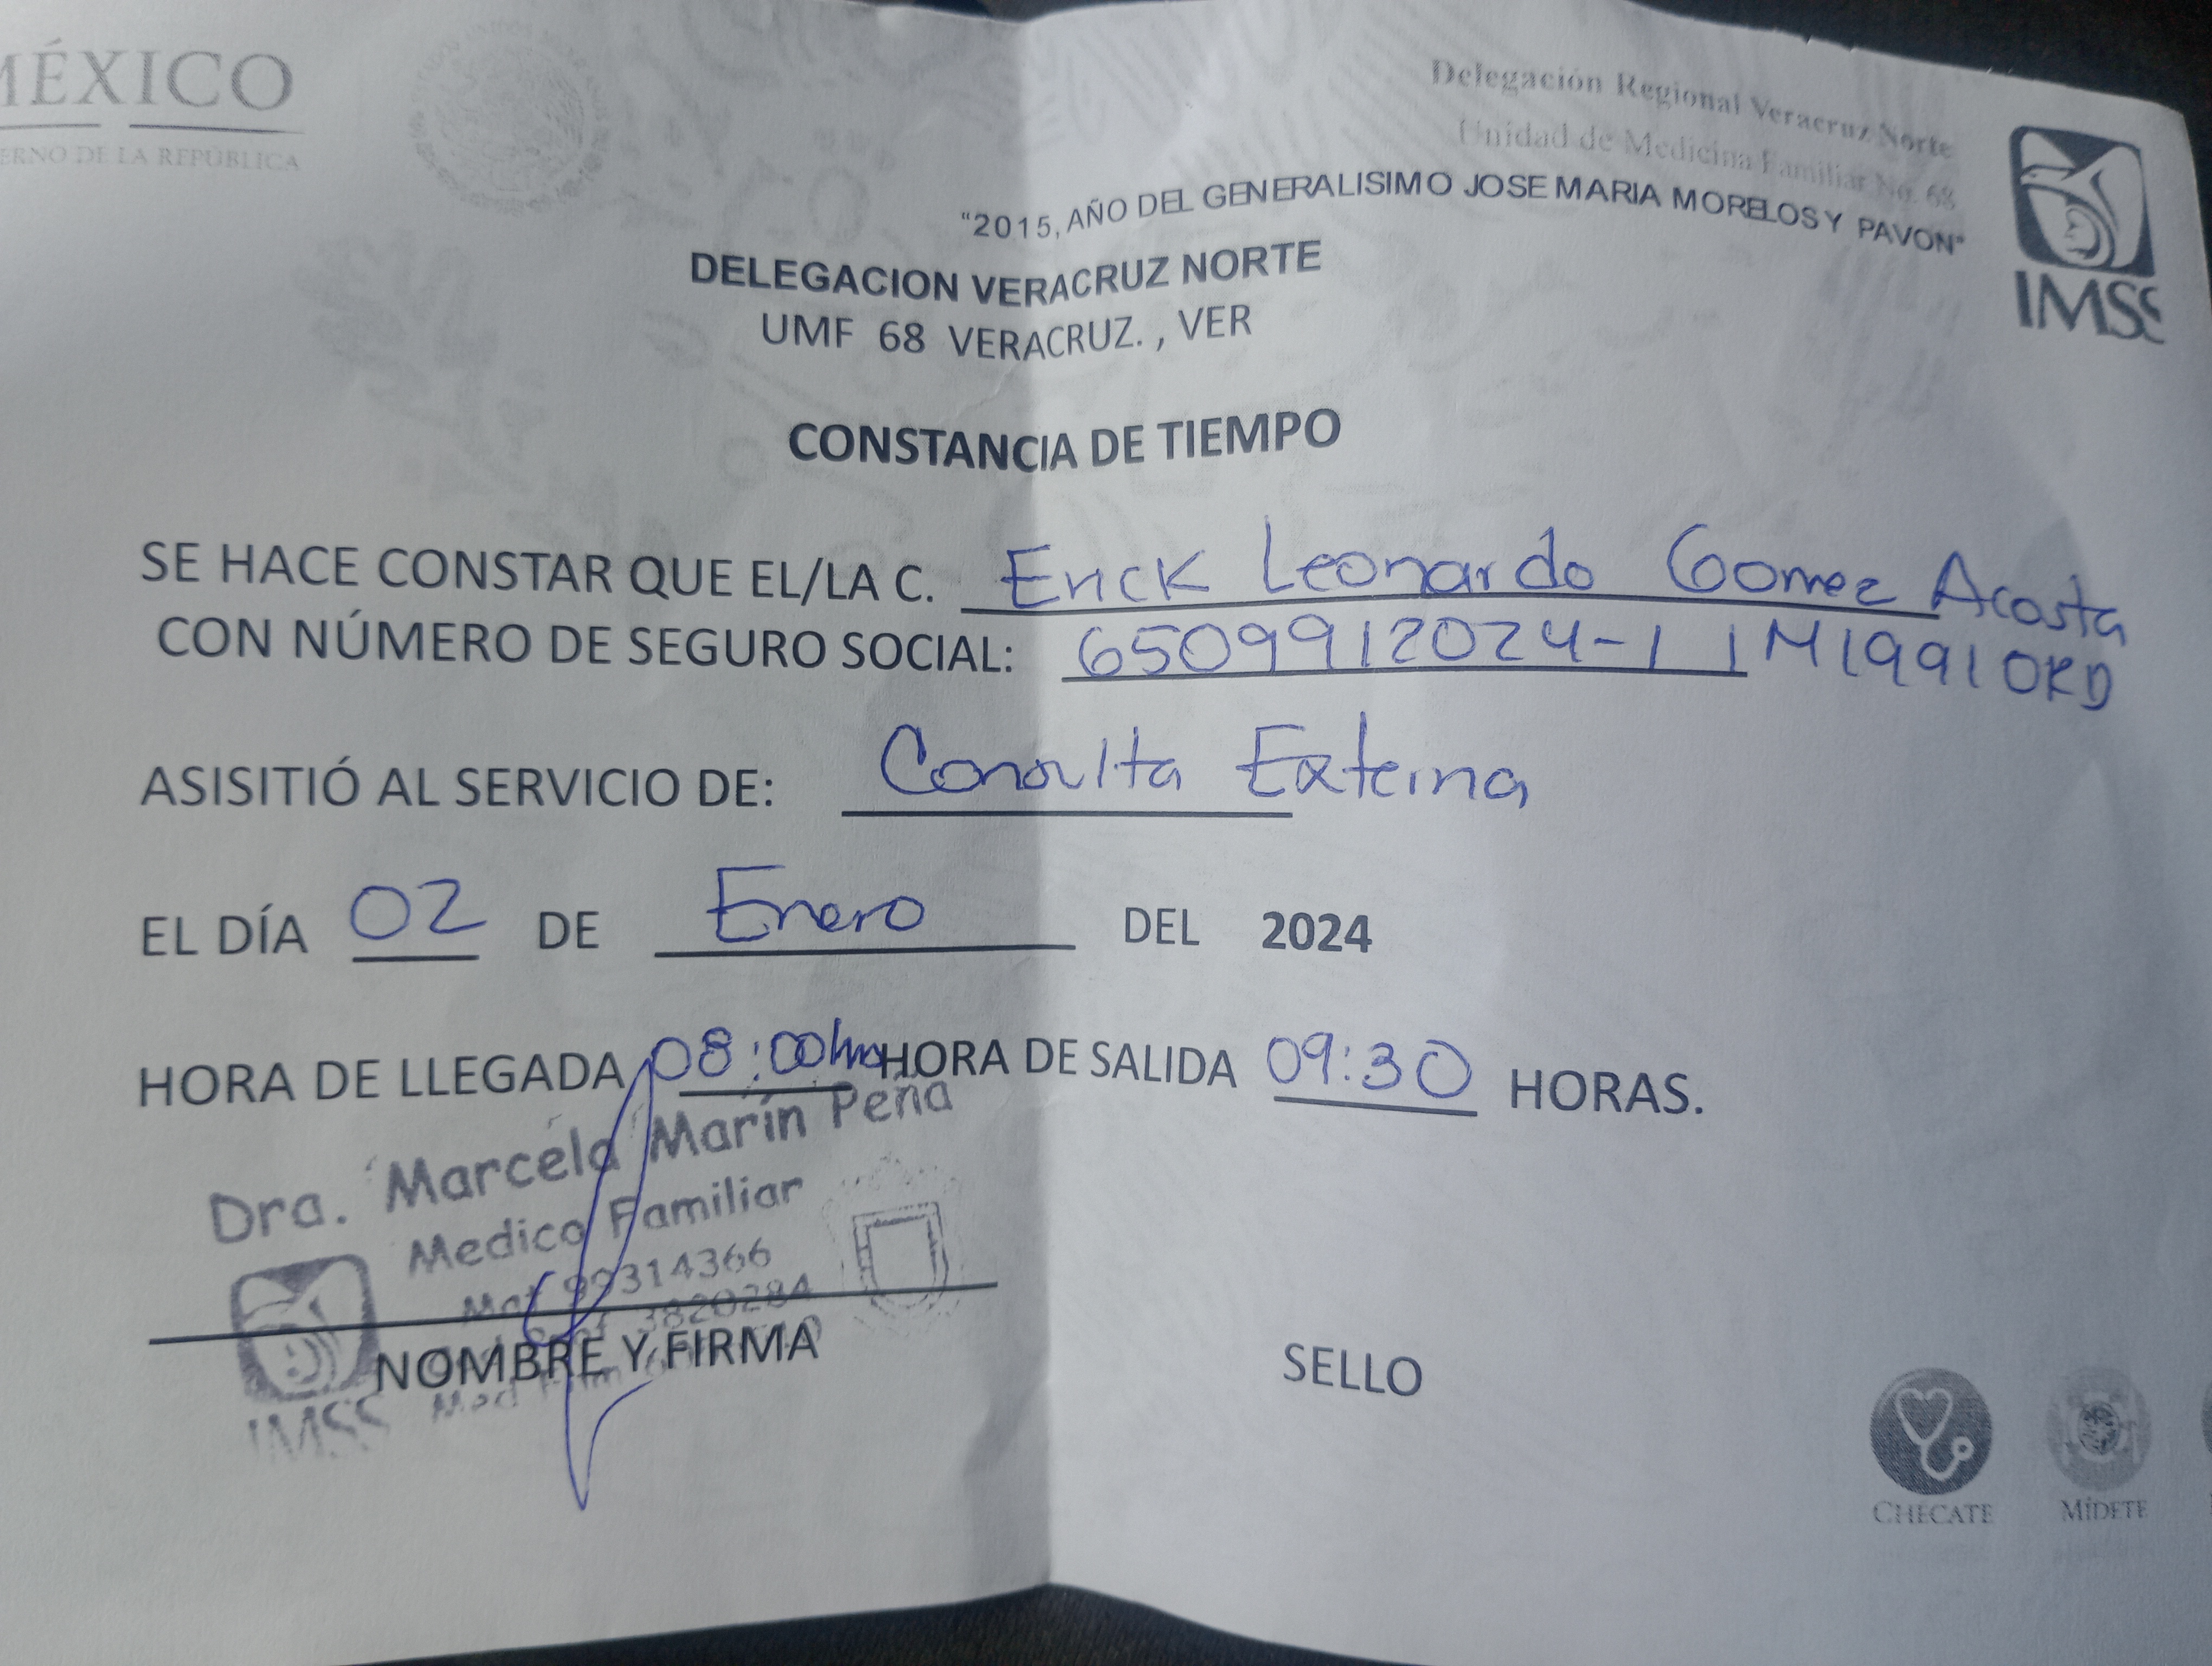 MÉXICO
ERNO DE LA REPÚBLICA
Delegación Regional Veracruz Norte
Unidad de Medicina Familiar No. 68
"2015, AÑO DEL GENERALISIMO JOSE MARIA MORELOS Y PAVON"
IMSS
DELEGACION VERACRUZ NORTE
UMF 68 VERACRUZ. , VER
CONSTANCIA DE TIEMPO
SE HACE CONSTAR QUE EL/LA C. Erick Leonardo Gomez Acosta
CON NÚMERO DE SEGURO SOCIAL: 6509912024-1 1M1991ORD
ASISITIÓ AL SERVICIO DE: Consulta Externa
EL DÍA 02 DE Enero DEL 2024
HORA DE LLEGADA 08:00hrs HORA DE SALIDA 09:30 HORAS.
Dra. Marcela Marín Peña
Medico Familiar
Mat 99314366
3820284
NOMBRE Y FIRMA
IMSS Med
SELLO
CHÉCATE
MÍDETE